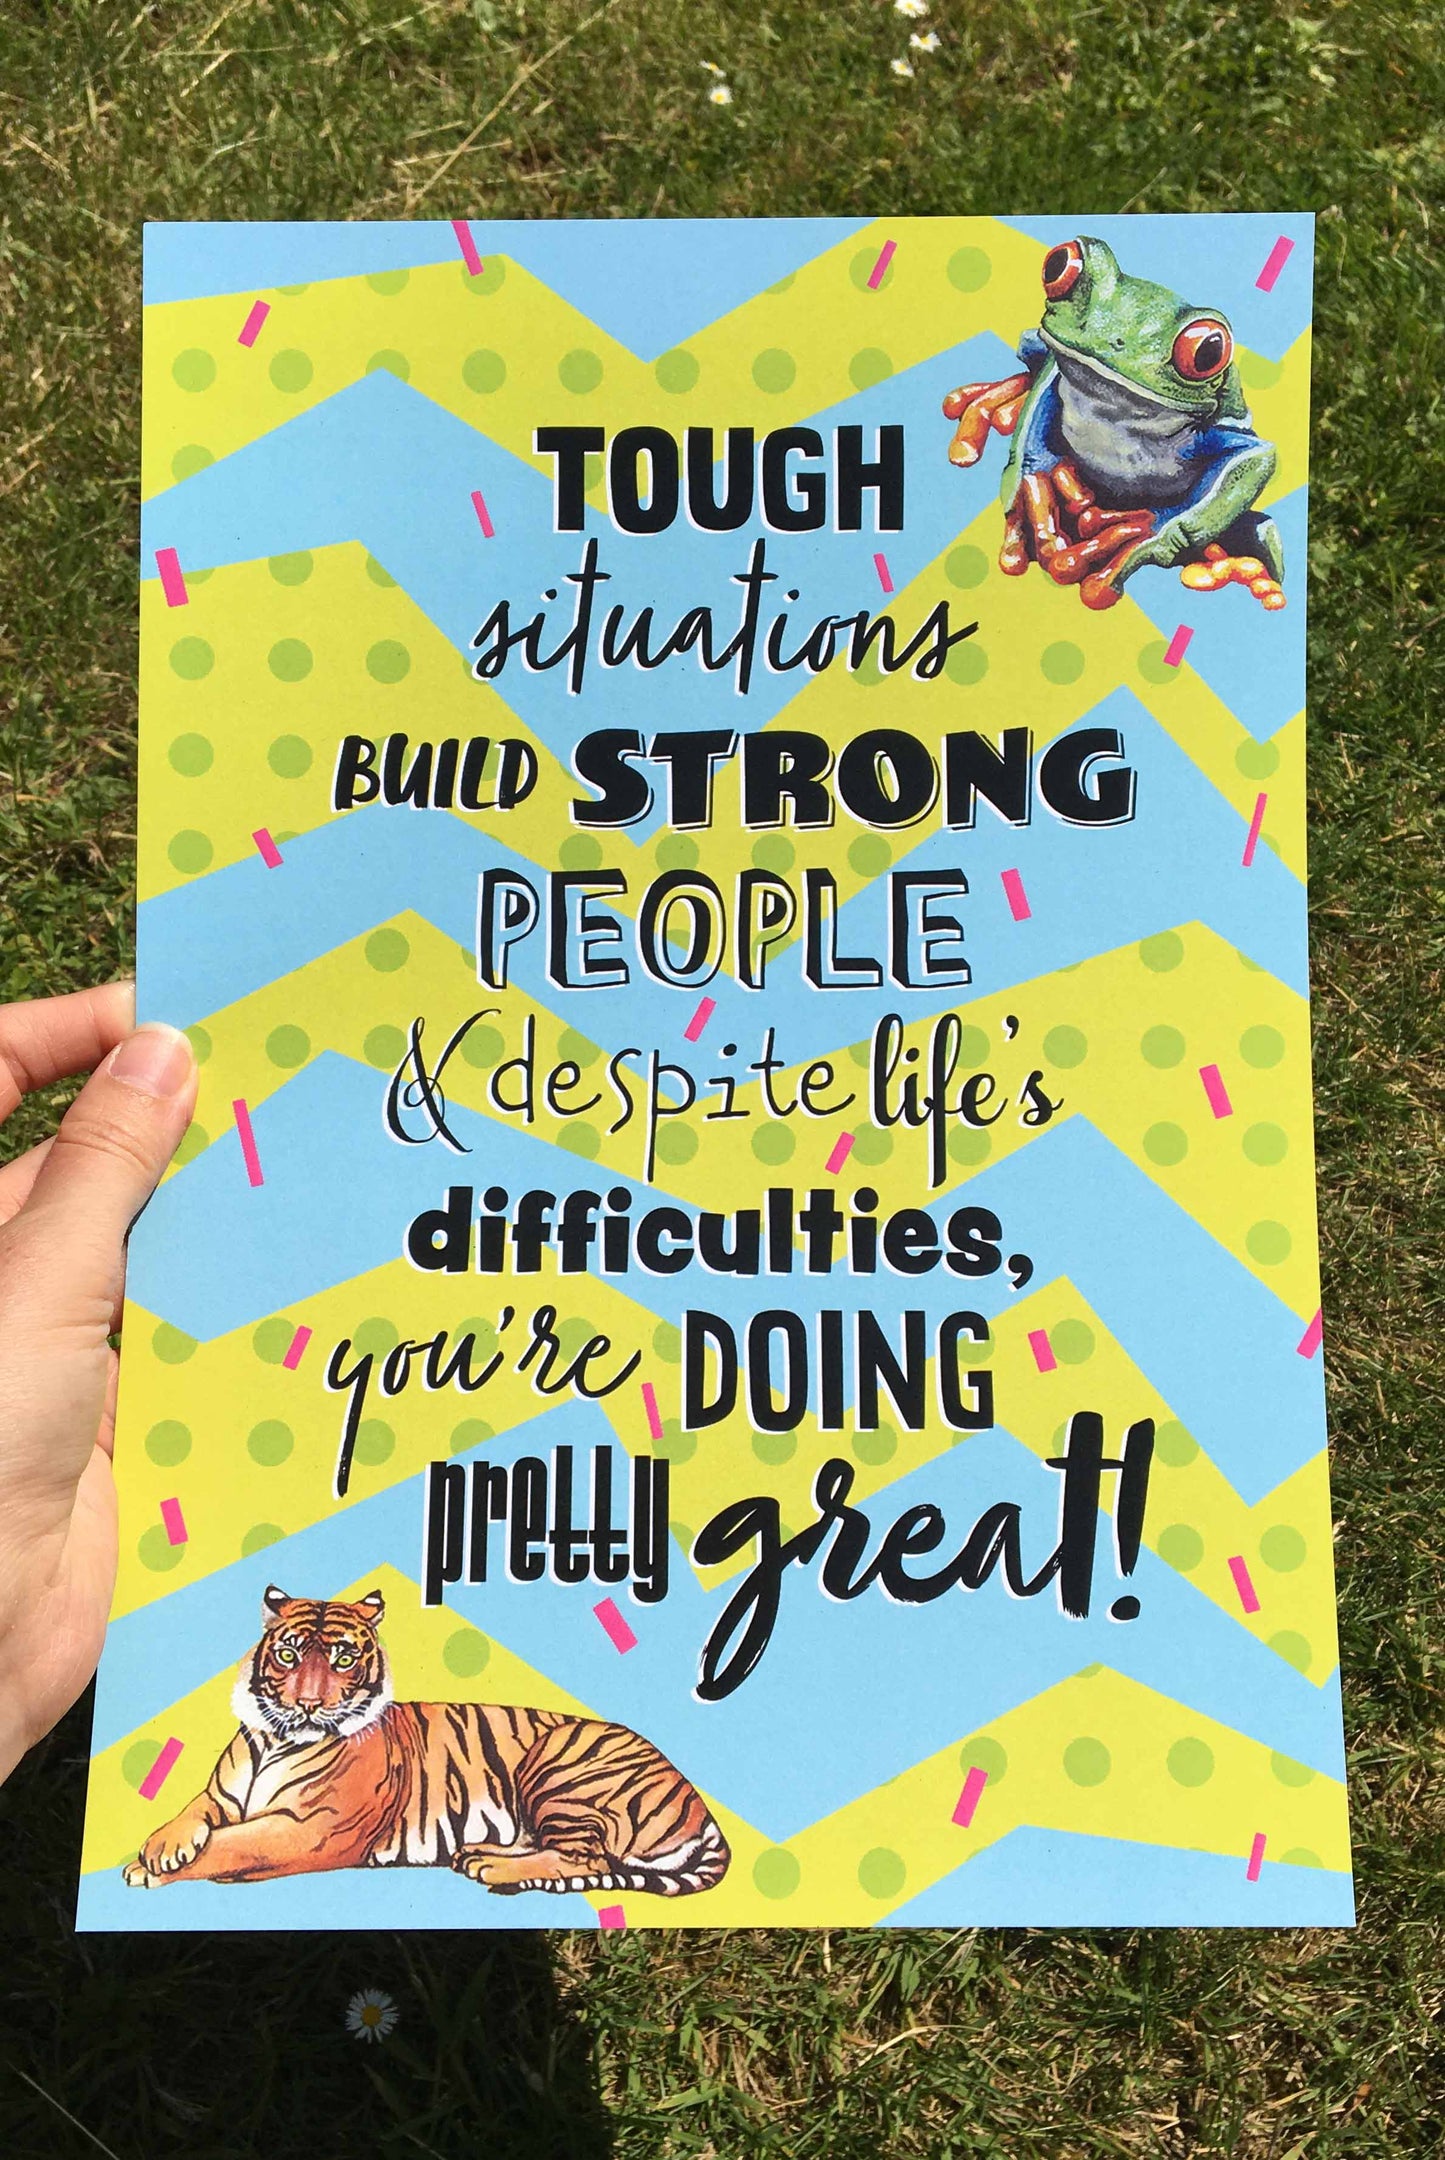 TOUGH
situations
BUILD STRONG
PEOPLE
& despite life's
difficulties,
you're DOING
pretty great!